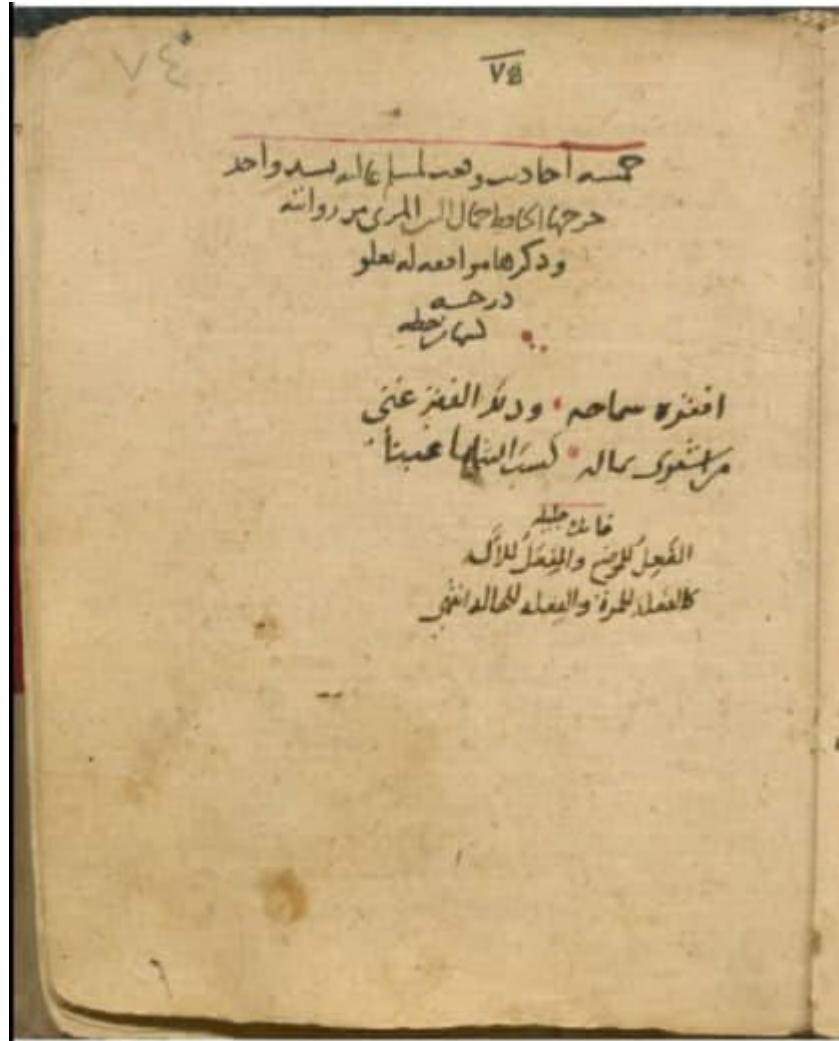 ٧٤
٧٤
خمسه احاديث وقعت لمسلم عاليه بسند واحد
خرجها الحافظ جمال الدين المزي من روايته
وذكرها موافقه له بعلو
درجه
افقره سماحه ودكر الفقر غنى
من اشتری بماله
فائدة جليلة
المَفعِلُ للموضع والمِفعَلُ للآله
كالفعله للمرة والفِعله للحاله انتهى